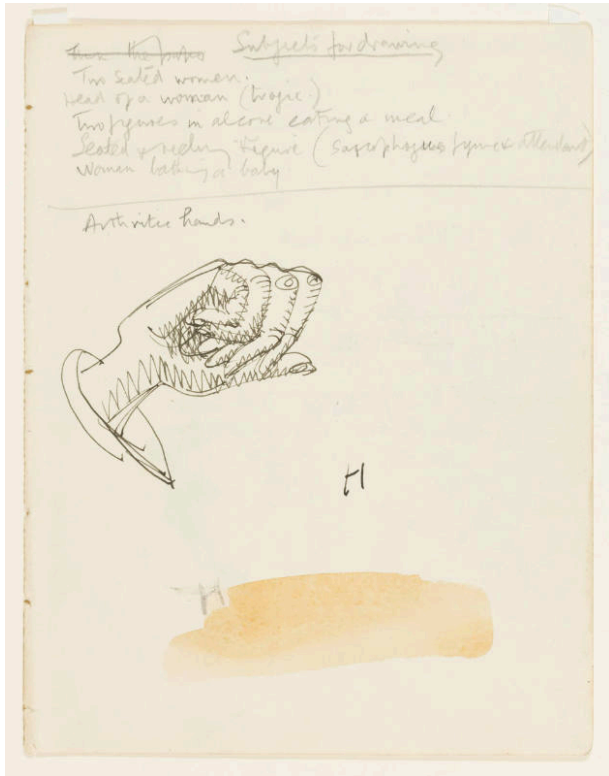 Subjects for drawing
Two Seated women.
Head of a woman (tragic)
Two figures in alcove eating a meal
Seated & reclin figure (sarcophagus attendant)
Woman bathing a baby
Arthritic hands.
H
H